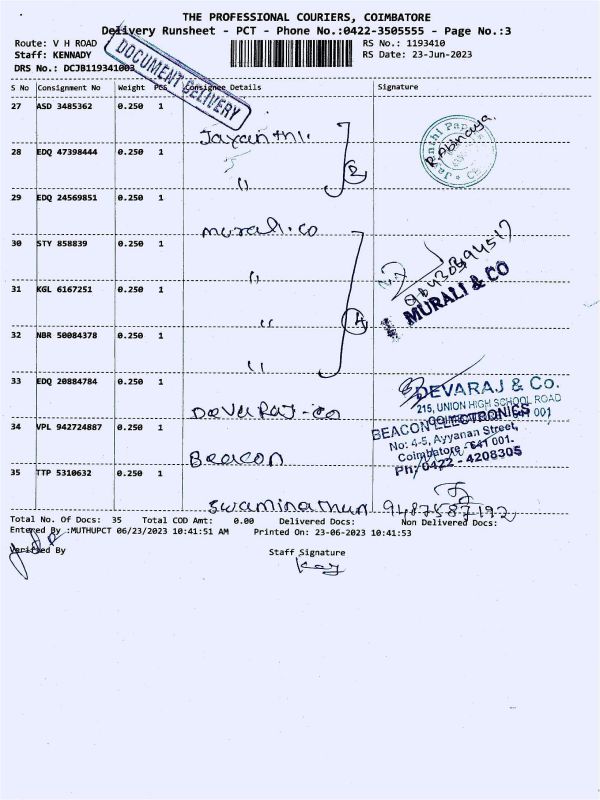 THE PROFESSIONAL COURIERS, COIMBATORE
Delivery Runsheet - PCT - Phone No.:0422-3505555 - Page No.:3
Route: V H ROAD
RS No.: 1193410
Staff: KENNADY
RS Date: 23-Jun-2023
DRS No.: DCJB119341003
DOCUMENT DELIVERY
S No Consignment No Weight PCS Consignee Details Signature
27 ASD 3485362 0.250 1
Jayanthi.
28 EDQ 47398444 0.250 1
" 2
R.Abinaya.
29 EDQ 24569851 0.250 1
murali.co
30 STY 858839 0.250 1
"
31 KGL 6167251 0.250 1
"
MURALI & CO
32 NBR 50084378 0.250 1
" 4
33 EDQ 20884784 0.250 1
DevaRaj-co
DEVARAJ & Co.
215, UNION HIGH SCHOOL ROAD
34 VPL 942724887 0.250 1
Beacon
BEACON ELECTRONICS
No: 4-5, Ayyanan Street,
Coimbatore - 641 001.
Ph: 0422 - 4208305
35 TTP 5310632 0.250 1
Swaminathan 9487587192
Total No. Of Docs: 35 Total COD Amt: 0.00 Delivered Docs: Non Delivered Docs:
Entered By :MUTHUPCT 06/23/2023 10:41:51 AM Printed On: 23-06-2023 10:41:53
Verified By Staff Signature